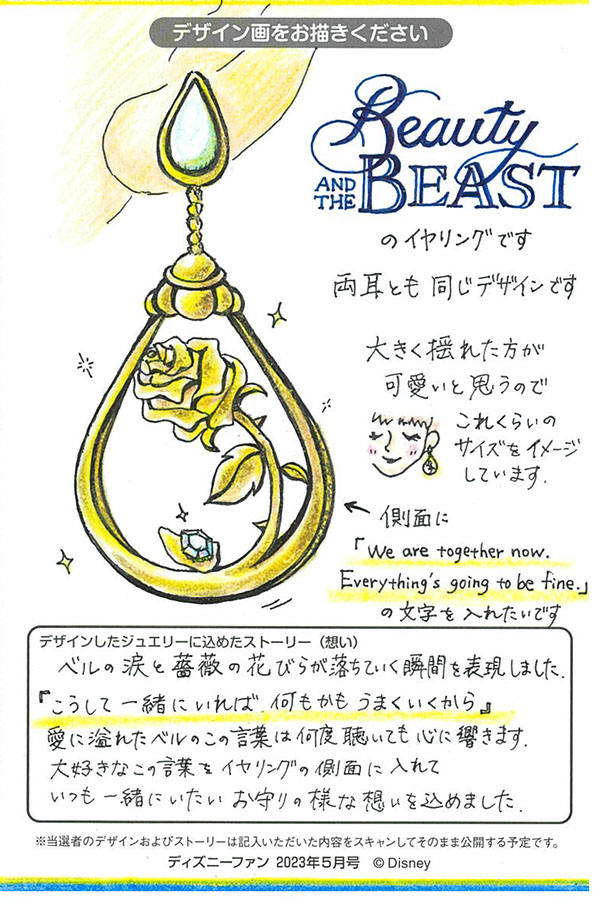 デザイン画をお描きください
Beauty
AND THE BEAST
のイヤリングです
両耳とも同じデザインです
大きく揺れた方が
可愛いと思うので
これくらいの
サイズをイメージ
しています.
← 側面に
「We are together now.
Everything's going to be fine.」
の文字を入れたいです
デザインしたジュエリーに込めたストーリー（想い）
ベルの涙と薔薇の花びらが落ちていく瞬間を表現しました.
『こうして一緒にいれば.何もかもうまくいくから』
愛に溢れたベルのこの言葉は何度聴いても心に響きます.
大好きなこの言葉をイヤリングの側面に入れて
いつも一緒にいたいお守りの様な想いを込めました.
※当選者のデザインおよびストーリーは記入いただいた内容をスキャンしてそのまま公開する予定です。
ディズニーファン 2023年5月号 ©Disney